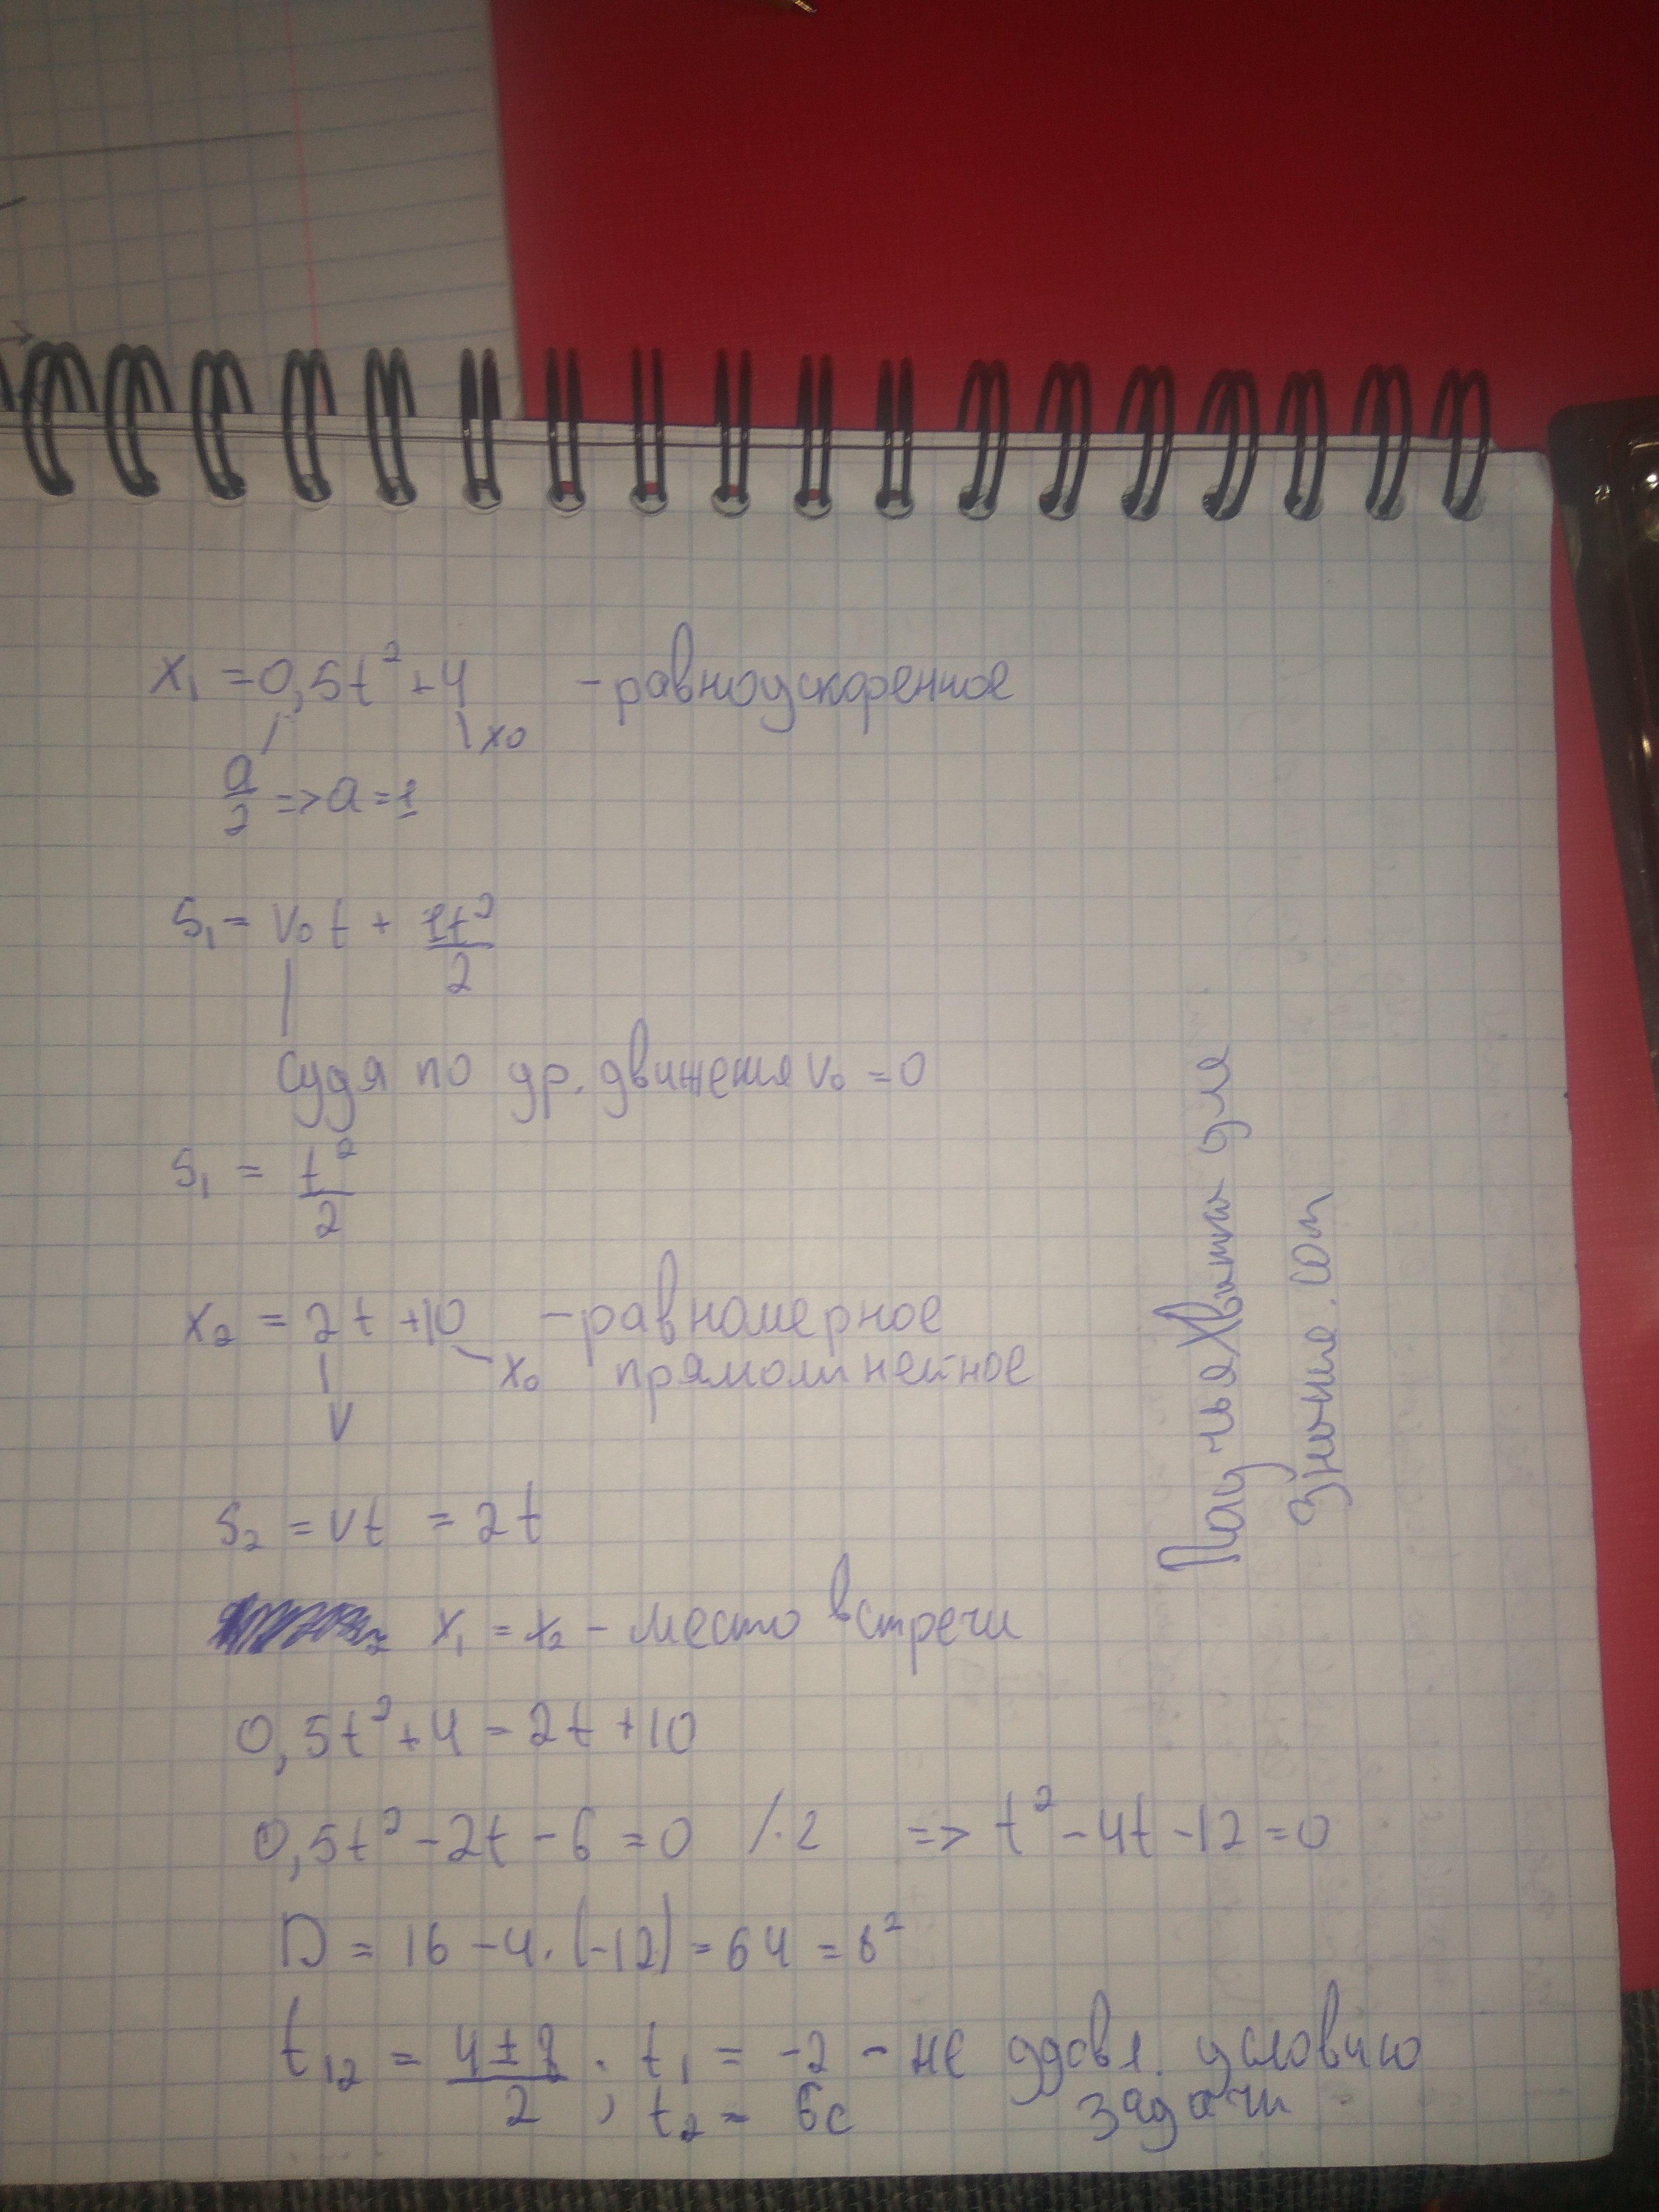 x₁ = 0,5t² + 4 - равноускоренное
x0
a/2 => a = 1
S₁ = v₀t + 1t²/2
Судя по ур. движения v₀ = 0
S₁ = t²/2
x₂ = 2t + 10 - равномерное
x₀ прямолинейное
V
S₂ = Vt = 2t
x₁ = x₂ - место встречи
0,5t² + 4 = 2t + 10
0,5t² - 2t - 6 = 0 /·2 => t² - 4t - 12 = 0
D = 16 - 4·(-12) = 64 = 8²
t₁₂ = 4 ± 8/2 ; t₁ = -2 - не удовл. условию
t₂ = 6c задачи
для
Знания.com